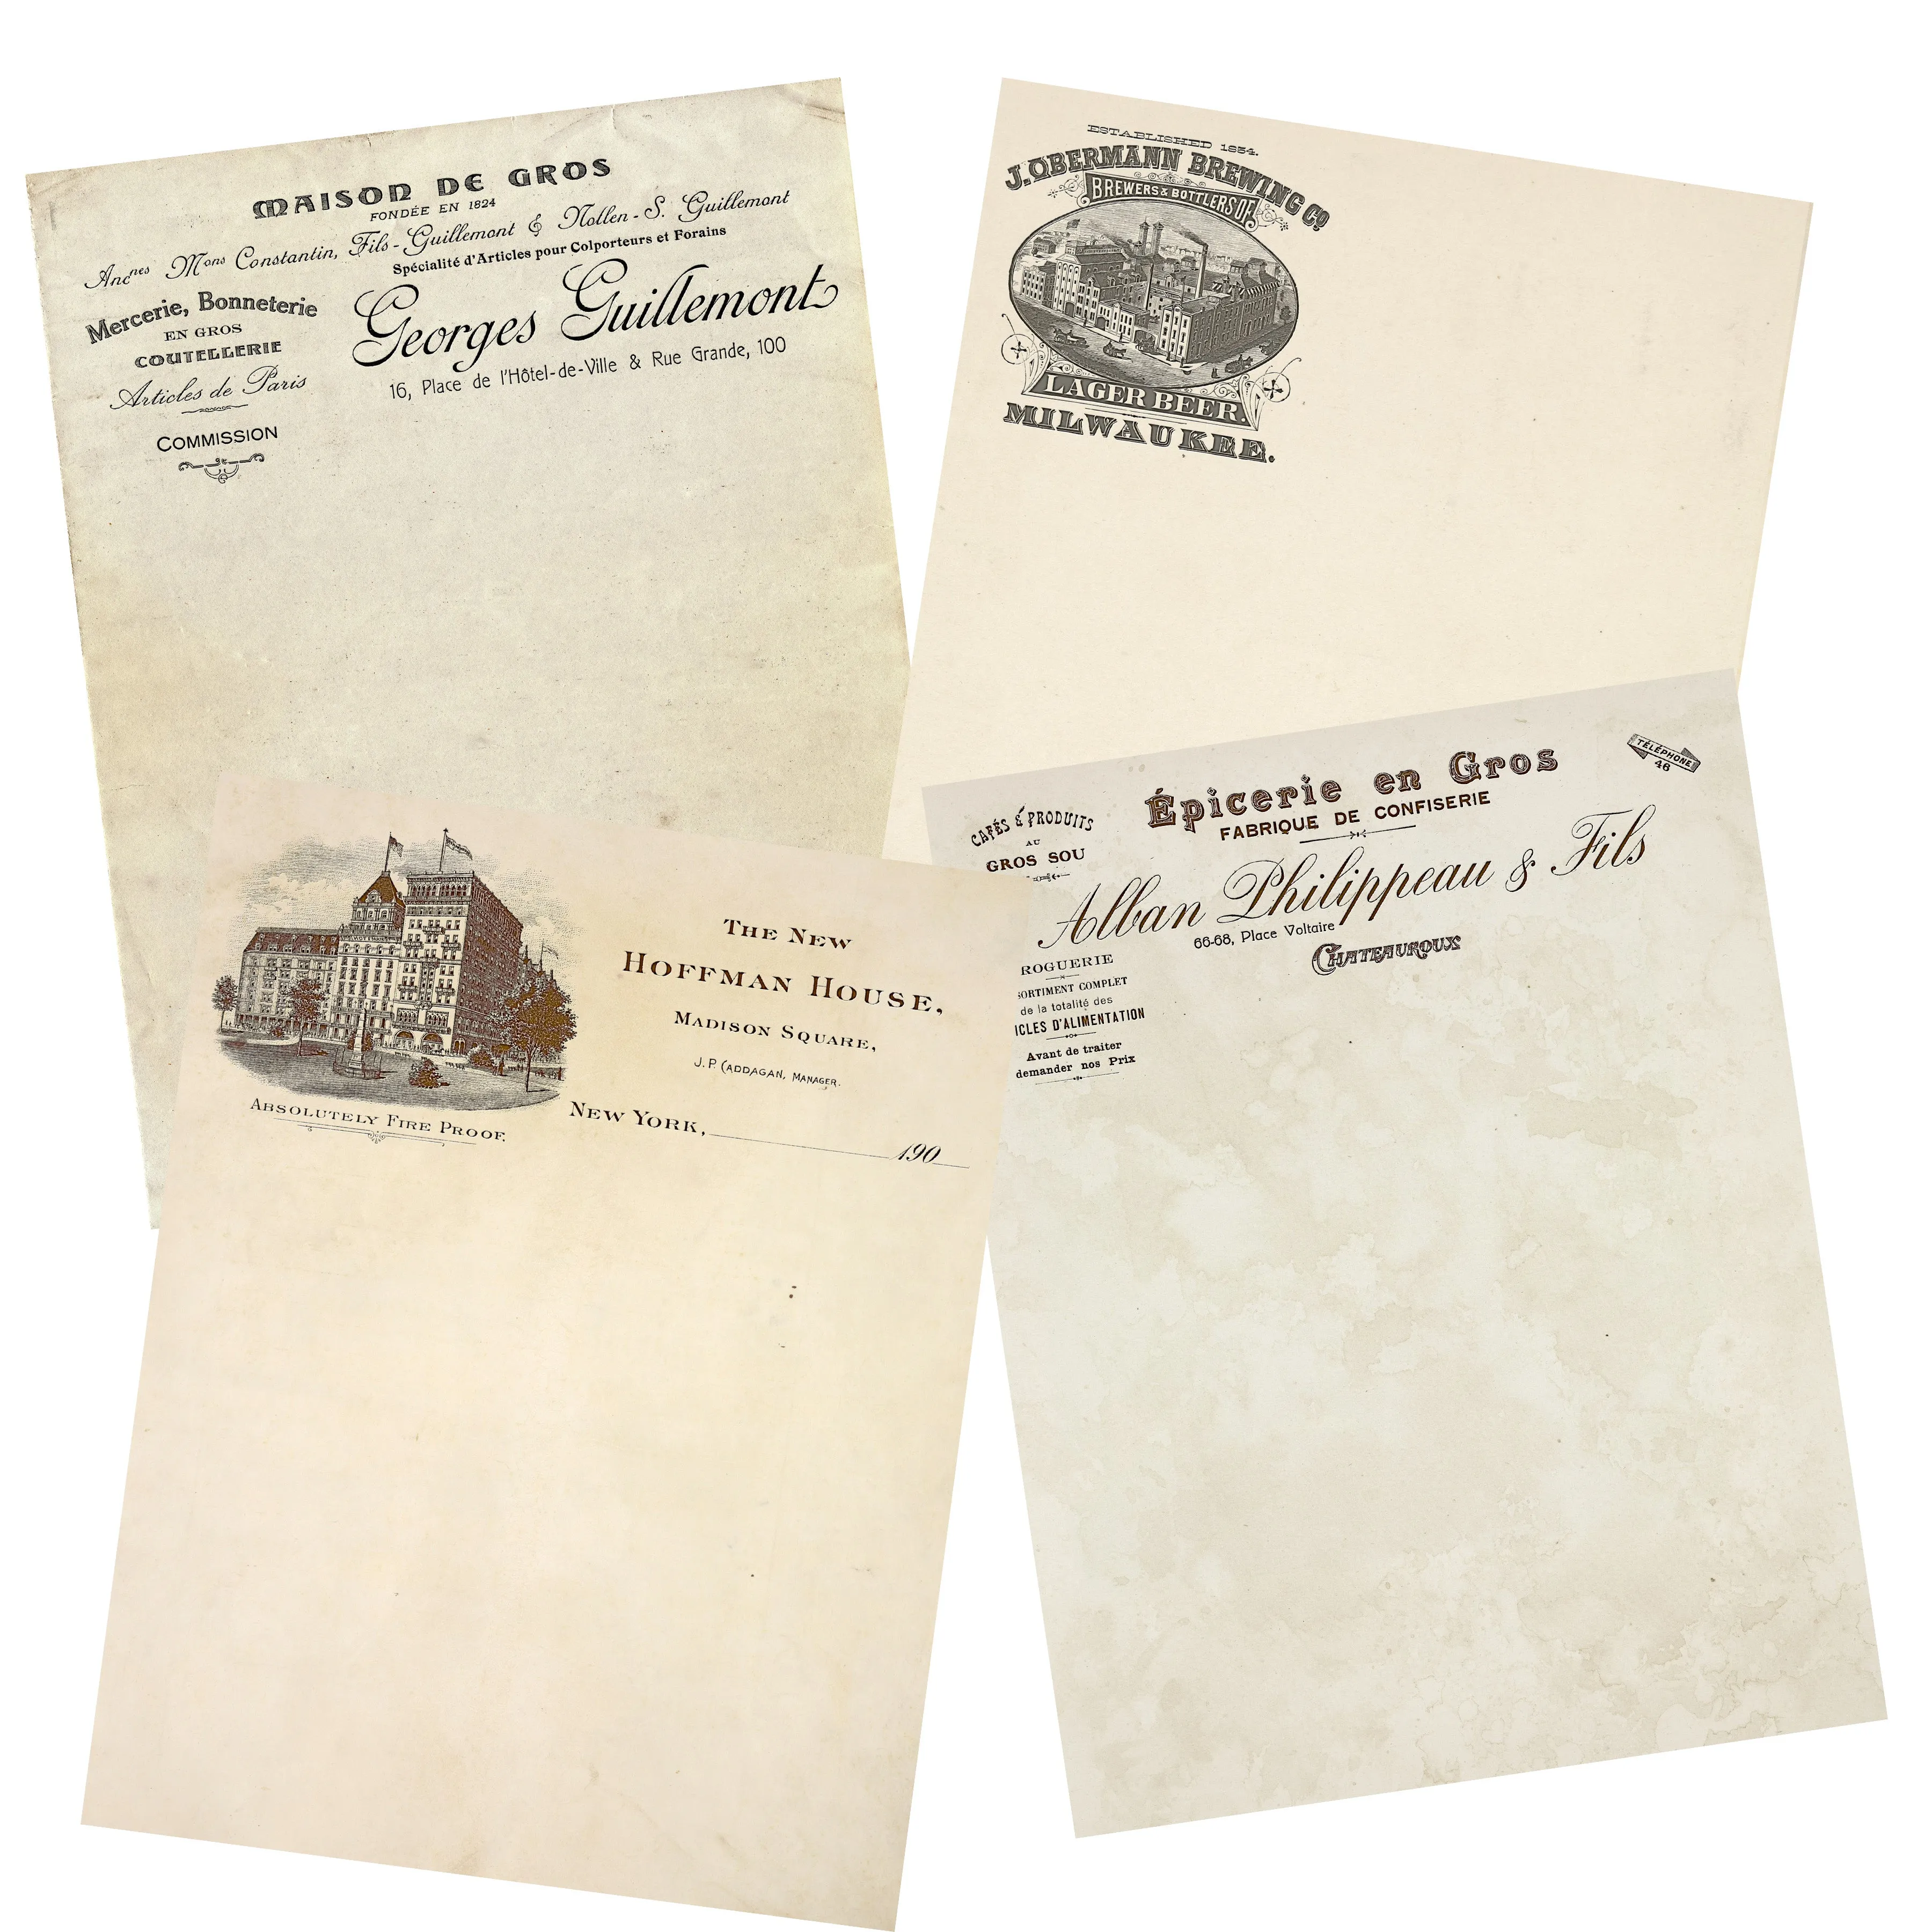 MAISON DE GROS
FONDÉE EN 1824
Anc^nes M^ons Constantin, Fils-Guillemont & Nollen-S. Guillemont
Spécialité d'Articles pour Colporteurs et Forains
Georges Guillemont
16, Place de l'Hôtel-de-Ville & Rue Grande, 100
Mercerie, Bonneterie
EN GROS
COUTELLERIE
Articles de Paris
COMMISSION
ESTABLISHED 1854.
J. OBERMANN BREWING CO
BREWERS & BOTTLERS OF
LAGER BEER.
MILWAUKEE.
THE NEW
HOFFMAN HOUSE,
MADISON SQUARE,
J. P. CADDAGAN, MANAGER.
ABSOLUTELY FIRE PROOF.
NEW YORK, 190
TÉLÉPHONE
46
Épicerie en Gros
FABRIQUE DE CONFISERIE
CAFÉS & PRODUITS
AU
GROS SOU
Alban Philippeau & Fils
66-68, Place Voltaire
CHATEAUROUX
ROGUERIE
SORTIMENT COMPLET
de la totalité des
ICLES D'ALIMENTATION
Avant de traiter
demander nos Prix